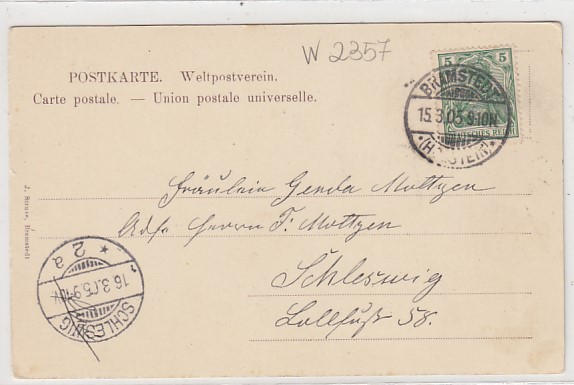 W 2357
POSTKARTE. Weltpostverein.
Carte postale. — Union postale universelle.
5 5
DEUTSCHES REICH
BRAMSTEDT
15.3.05.9-10N.
*(HOLSTEIN)*
Fräulein Gerda Mottzen
Adr. Herrn F. Mottzen
Schleswig
Lollfuß 58.
Bramstedt
* 2 a
16.3.05.9-10V.
SCHLESWIG